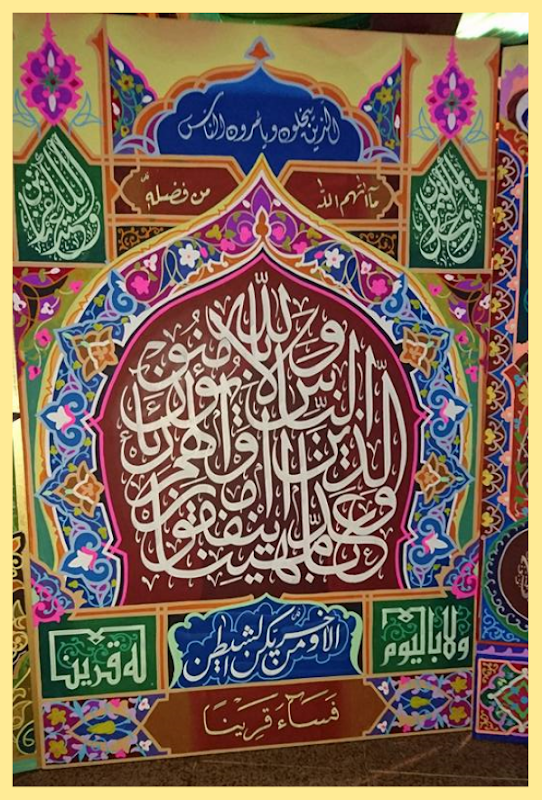 الذين يبخلون ويأمرون الناس
ما آتاهم الله
من فضله
عذابا مهينا والذين ينفقون أموالهم رئاء الناس ولا يؤمنون بالله
ولا باليوم
الآخر ومن يكن الشيطن
له قرينا
فَسَاءَ قَرِينًا